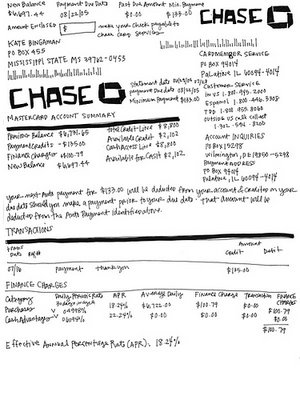 New Balance Payment Due Date Past Due Amount Min. Payment
$6697.44 08/22/05 $0.00 $133.00
Amount Enclosed $ make your check payable to
chase card services.
CHASE
KATE BINGAMAN
PO BOX 455
MISSISSIPPI STATE MS 39762-0455
CARDMEMBER SERVICE
PO BOX 94014
Palatine IL 60094-4014
CHASE
Statement date
payment due date 08/22/05
minimum payment $133.00
Customer Service
in U.S.
Español
TDD 1.800.955.8060
outside us call collect
MASTERCARD ACCOUNT SUMMARY
Previous Balance Total Credit Line $8,800
Payment, credits -$135.00 Available Credit $2,102
Finance charges +$100.79 Cash Access Line $8,800
New Balance $6697.44 Available for Cash $2,102
ACCOUNT INQUIRIES
PO BOX 15298
Wilmington, DE 19850-5298
Payment address
PO BOX 94014
Palatine, IL 60094-4014
your next auto payment for $133.00 will be deducted from your account & credited on your
due date. should you make a payment prior to your due date, that amount will be
deducted from the Auto Payment identified above.
TRANSACTIONS
Trans Date Ref# Amount
Credit Debit
payment thank you $135.00
FINANCE CHARGES
Category Daily Periodic Rate APR Average Daily Finance Charge Transaction FINANCE CHARGES
Purchases V .04998% 18.24% $6,722.00 $100.79 $0.00 $100.79
Cash Advances V 22.24% $0.00 $0.00 $0.00 $0.00
$100.79
Effective Annual Percentage Rate (APR): 18.24%